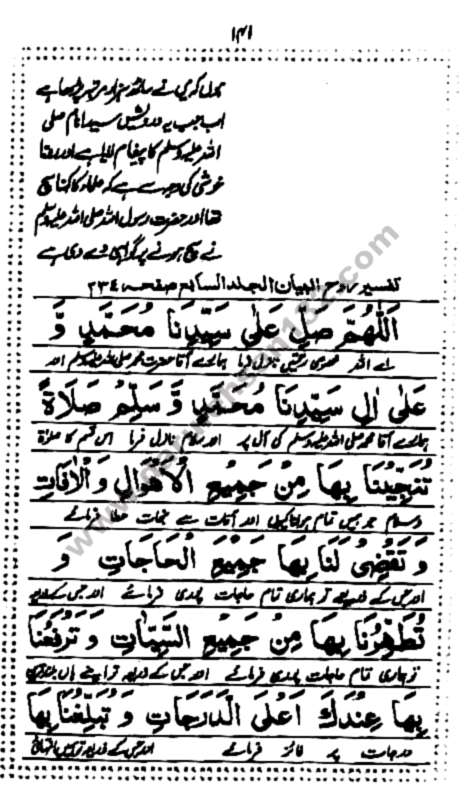 ۱۴۱
اب جب یہ درویش سید انام صلی
اللہ علیہ وسلم کا پیغام لایا ہے اور رضا
خوشی کی وجہ سے ہے کہ علماء کا کہنا سچ
تھا اور حضرت رسول اللہ صلی اللہ علیہ وسلم
نے سچ ہونے پر گواہی دے دی ہے
تفسیر روح البیان الجلد السابع صفحہ ۲۳٤
اَللّٰهُمَّ صَلِّ عَلٰى سَيِّدِنَا مُحَمَّدٍ وَّ
اے اللہ خصوصی رحمتیں نازل فرما ہمارے آقا حضرت محمد صلی اللہ علیہ وسلم اور
عَلٰى اٰلِ سَيِّدِنَا مُحَمَّدٍ وَّ سَلِّمْ صَلَاةً
ہمارے آقا محمد صلی اللہ علیہ وسلم کی آل پر اور سلام نازل فرما اس قسم کا صلاۃ
تُنَجِّيْنَا بِهَا مِنْ جَمِيْعِ الْاَهْوَالِ وَ الْاٰفَاتِ
وسلام جو ہمیں تمام اور آفات سے نجات عطا فرمائے
وَ تَقْضِىْ لَنَا بِهَا جَمِيْعَ الْحَاجَاتِ وَ
اور جس کے ذریعے تو ہماری تمام حاجات پوری فرمائے اور جس کے ذریعہ
تُطَهِّرُنَا بِهَا مِنْ جَمِيْعِ السَّيِّاٰتِ وَ تَرْفَعُنَا
تو ہماری تمام حاجات پوری فرمائے اور جس کے ذریعہ تو اپنے ہاں
بِهَا عِنْدَكَ اَعْلَى الدَّرَجَاتِ وَ تُبَلِّغُنَا بِهَا
درجات پر فائز فرمائے اور جس کے ذریعہ تو ہمیں